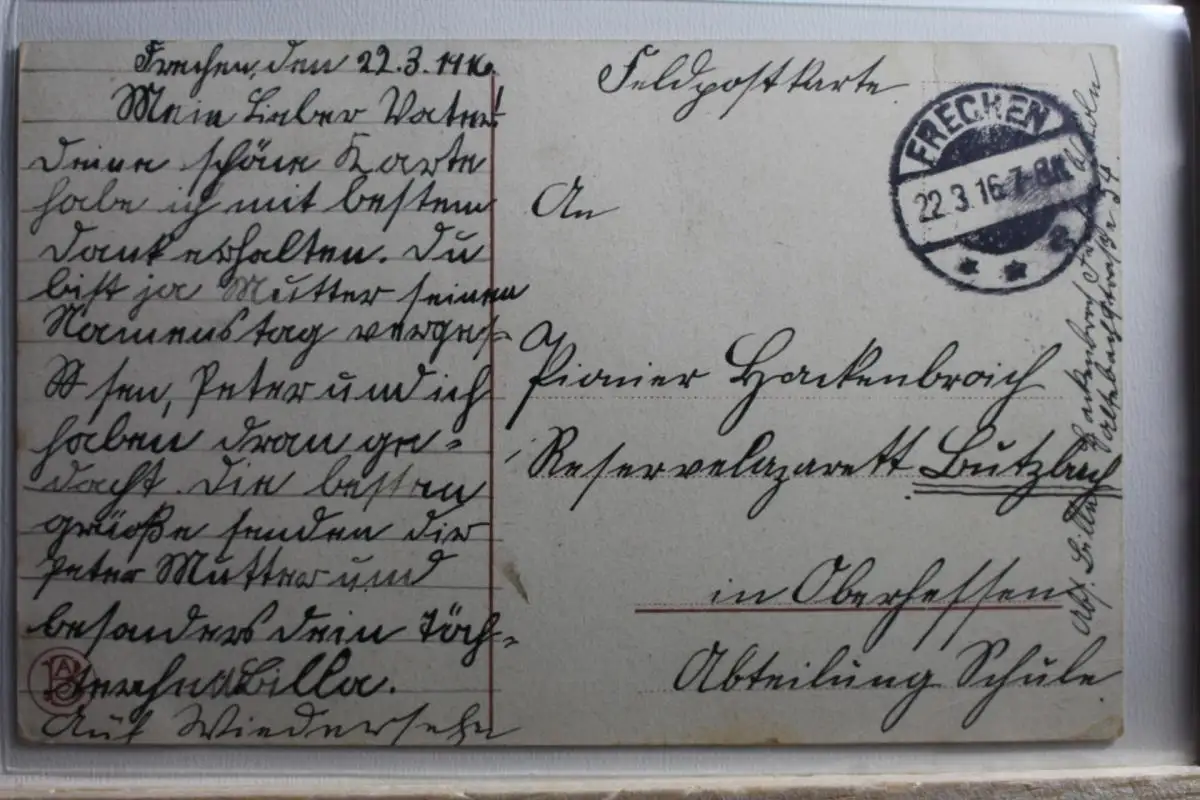 Frechen, den 22.3.1916.
Mein Lieber Vater!
Deine schöne Karte
habe ich mit bestem
Dank erhalten. Du
bist ja Mutter seinen
Namenstag verges-
sen, Peter und ich
haben dran ge-
dacht. Die besten
grüße senden dir
Peter Mutter und
besonders dein Töch-
terchen Billa.
Auf Wiedersehn
Feldpostkarte
FRECHEN
22.3.16.7-8N
* * a
An
Pionier Hackenbroich
Reservelazarett Butzbach
in Oberhessen
Abteilung Schule
Abs. Billa Hackenbroich
straße 34.